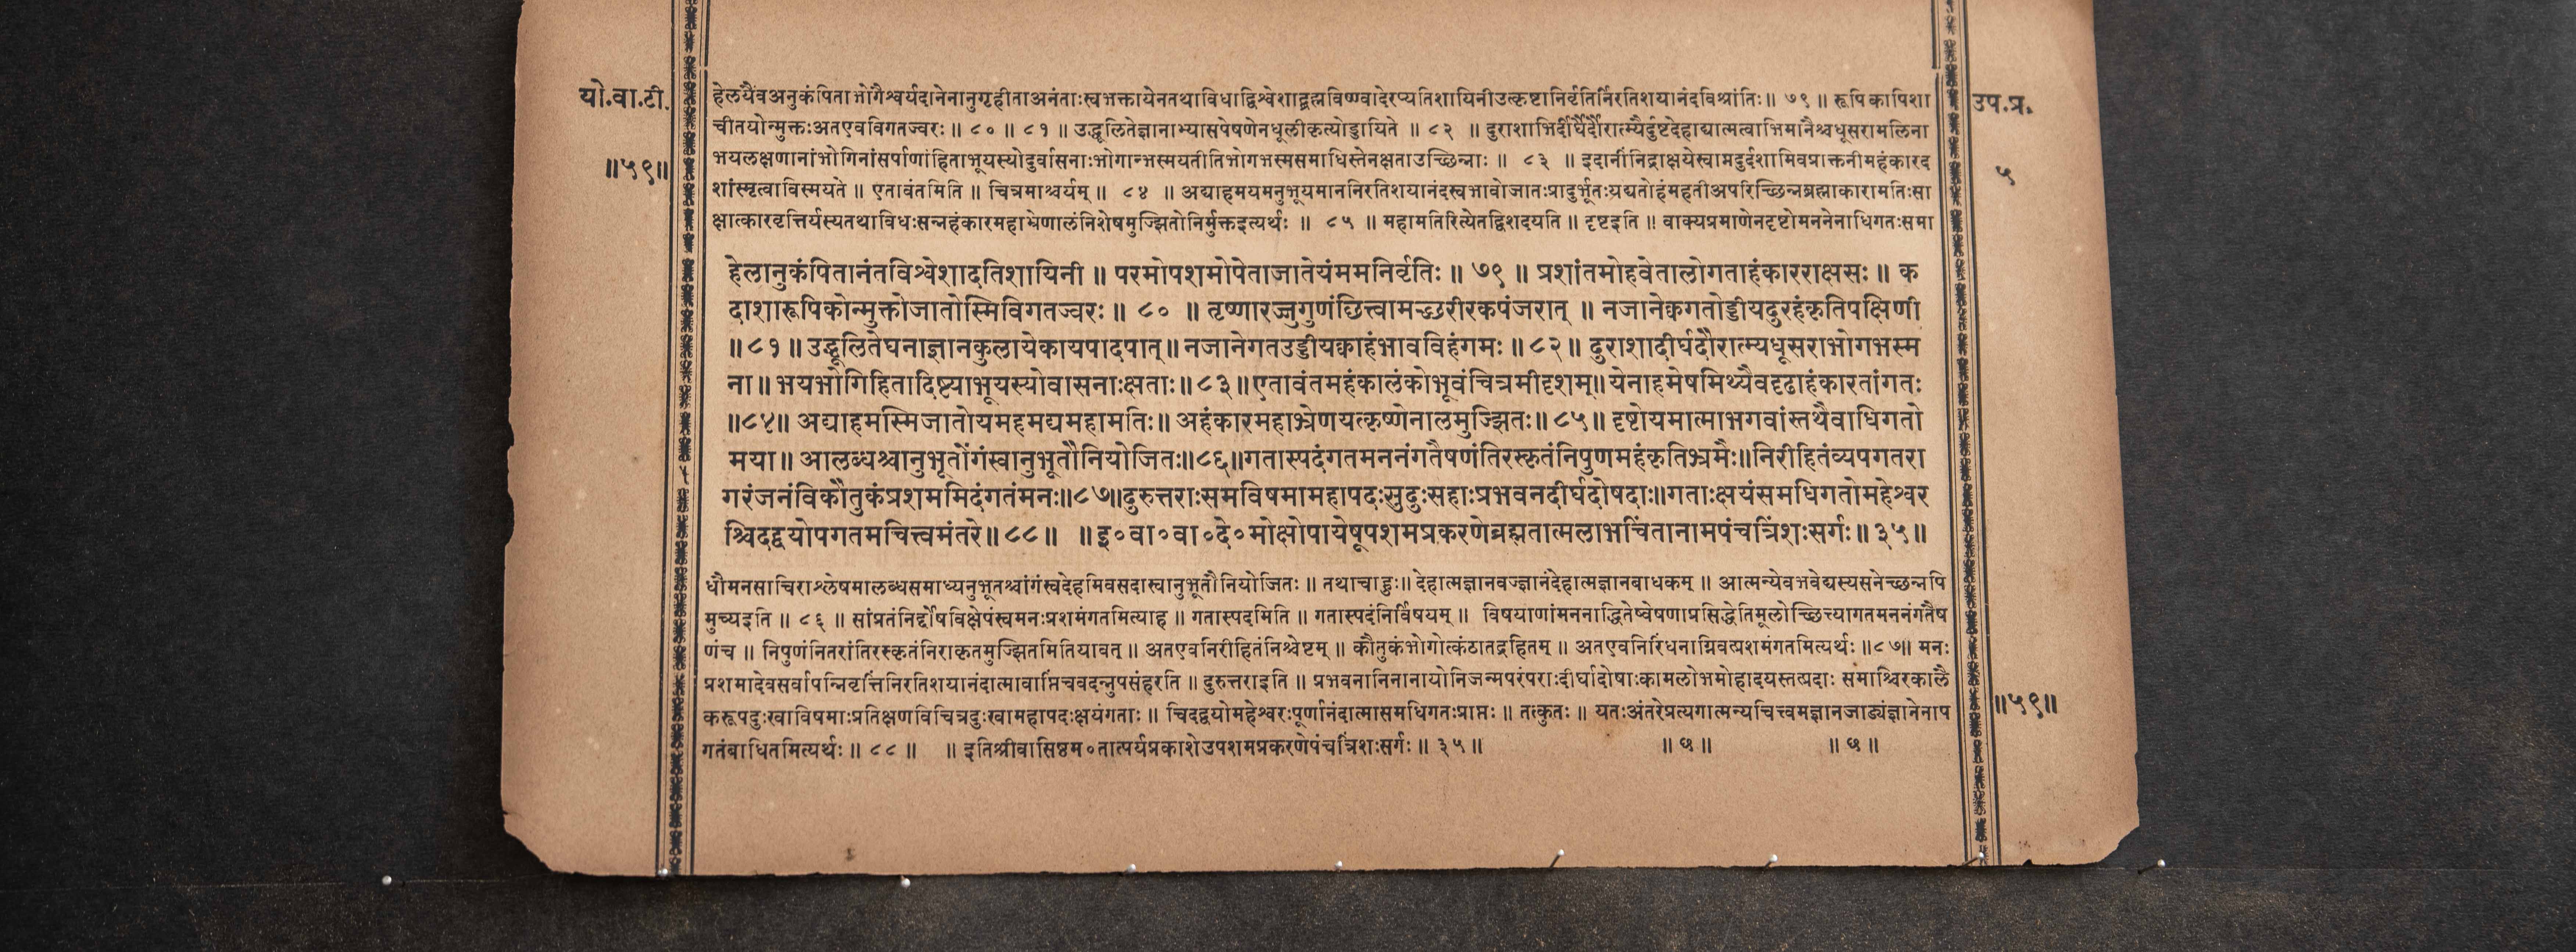 यो.वा.टी.
॥५९॥
हेलयैवअनुकंपिताभोगैश्वर्यदानेनानुगृहीताअनंताःस्वभक्तायेनतथाविधाद्विश्वेशाद्ब्रह्मविष्ण्वादेरप्यतिशायिनीउत्कृष्टानिर्वृतिर्निरतिशयानंदविश्रांतिः॥ ७९ ॥ रूपिकापिशा
चीतयोन्मुक्तःअतएवविगतज्वरः ॥ ८० ॥ ८१ ॥ उद्धूलितेज्ञानाभ्यासपेषणेनधूलीकृत्योड्डायिते ॥ ८२ ॥ दुराशाभिर्दीर्घैर्दौरात्म्यैर्दुष्टदेहाद्यात्मत्वाभिमानैश्चधूसरामलिना
भयलक्षणानांभोगिनांसर्पाणांहिताभूयस्योदुर्वासनाःभोगान्भस्मयतीतिभोगभस्मसमाधिस्तेनक्षताउच्छिन्नाः ॥ ८३ ॥ इदानींनिद्राक्षयेस्वामदुर्दशामिवप्राक्तनीमहंकारद
शांस्मृत्वाविस्मयते ॥ एतावंतमिति ॥ चित्रमाश्चर्यम् ॥ ८४ ॥ अद्याहमयमनुभूयमाननिरतिशयानंदस्वभावोजातःप्रादुर्भूतःयद्यतोहंमहतीअपरिच्छिन्नब्रह्माकारामतिःसा
क्षात्कारवृत्तिर्यस्यतथाविधःसन्नहंकारमहाभ्रेणालंनिशेषमुज्झितोनिर्मुक्तइत्यर्थः ॥ ८५ ॥ महामतिरित्येतद्विशदयति ॥ दृष्टइति ॥ वाक्यप्रमाणेनदृष्टोमननेनाधिगतःसमा
हेलानुकंपितानंतविश्वेशादतिशायिनी ॥ परमोपशमोपेताजातेयंममनिर्वृतिः ॥ ७९ ॥ प्रशांतमोहवेतालोगताहंकारराक्षसः ॥ क
दाशारूपिकोन्मुक्तोजातोस्मिविगतज्वरः ॥ ८० ॥ तृष्णारज्जुगुणंछित्त्वामच्छरीरकपंजरात् ॥ नजानेक्वगतोड्डीयदुरहंकृतिपक्षिणी
॥ ८१ ॥ उद्धूलितेघनाज्ञानकुलायेकायपादपात् ॥ नजानेगतउड्डीयक्वाहंभावविहंगमः ॥ ८२ ॥ दुराशादीर्घदौरात्म्यधूसराभोगभस्म
ना ॥ भयभोगिहितादिष्ट्याभूयस्योवासनाःक्षताः ॥ ८३ ॥ एतावंतमहंकालंकोभूवंचित्रमीदृशम् ॥ येनाहमेषमिथ्यैवदृढाहंकारतांगतः
॥८४॥ अद्याहमस्मिजातोयमहमद्यमहामतिः ॥ अहंकारमहाभ्रेणयत्कृष्णेनालमुज्झितः ॥ ८५ ॥ दृष्टोयमात्माभगवांस्तथैवाधिगतो
मया ॥ आलब्धश्चानुभूतोंगंस्वानुभूतौनियोजितः ॥८६॥ गतास्पदंगतमननंगतैषणंतिरस्कृतंनिपुणमहंकृतिभ्रमैः॥ निरीहितंव्यपगतरा
गरंजनंविकौतुकंप्रशममिदंगतंमनः॥८७॥ दुरुत्तराःसमविषमामहापदःसुदुःसहाःप्रभवनदीर्घदोषदाः॥ गताःक्षयंसमधिगतोमहेश्वर
श्चिदद्वयोपगतमचित्त्वमंतरे॥ ८८॥ ॥ इ०वा०वा०दे०मोक्षोपायेषूपशमप्रकरणेब्रह्मतात्मलाभचिंतानामपंचत्रिंशःसर्गः॥ ३५॥
धौमनसाचिराश्लेषमालब्धसमाध्यनुभूतश्चांगंस्वदेहमिवसदास्वानुभूतौनियोजितः ॥ तथाचाहुः॥ देहात्मज्ञानवज्ज्ञानंदेहात्मज्ञानबाधकम् ॥ आत्मन्येवभवेद्यस्यसनेच्छन्नपि
मुच्यइति ॥ ८६ ॥ सांप्रतंनिर्दोषविक्षेपंस्वमनःप्रशमंगतमित्याह ॥ गतास्पदमिति ॥ गतास्पदंनिर्विषयम् ॥ विषयाणांमननाद्धितेष्वेषणाप्रसिद्धेतिमूलोच्छित्त्यागतमननंगतैष
णंच ॥ निपुणंनितरांतिरस्कृतंनिराकृतमुज्झितमितियावत् ॥ अतएवनिरीहितंनिश्चेष्टम् ॥ कौतुकंभोगोत्कंठातद्रहितम् ॥ अतएवनिरिंधनाग्निवत्प्रशमंगतमित्यर्थः ॥८७॥ मनः
प्रशमादेवसर्वापन्निवृत्तिंनिरतिशयानंदात्मावाप्तिंचवदन्नुपसंहरति ॥ दुरुत्तराइति ॥ प्रभवनानिनानायोनिजन्मपरंपराःदीर्घादोषाःकामलोभमोहादयस्तत्प्रदाः समाश्चिरकालै
करूपदुःखाविषमाःप्रतिक्षणविचित्रदुःखामहापदःक्षयंगताः ॥ चिदद्वयोमहेश्वरःपूर्णानंदात्मासमधिगतःप्राप्तः ॥ तत्कुतः ॥ यतःअंतरेप्रत्यगात्मन्यचित्त्वमज्ञानजाड्यंज्ञानेनाप
गतंबाधितमित्यर्थः ॥ ८८ ॥ ॥ इतिश्रीवासिष्ठम०तात्पर्यप्रकाशेउपशमप्रकरणेपंचत्रिंशःसर्गः ॥ ३५ ॥ ॥ ७ ॥ ॥ ७ ॥
उप.प्र.
५
॥५९॥